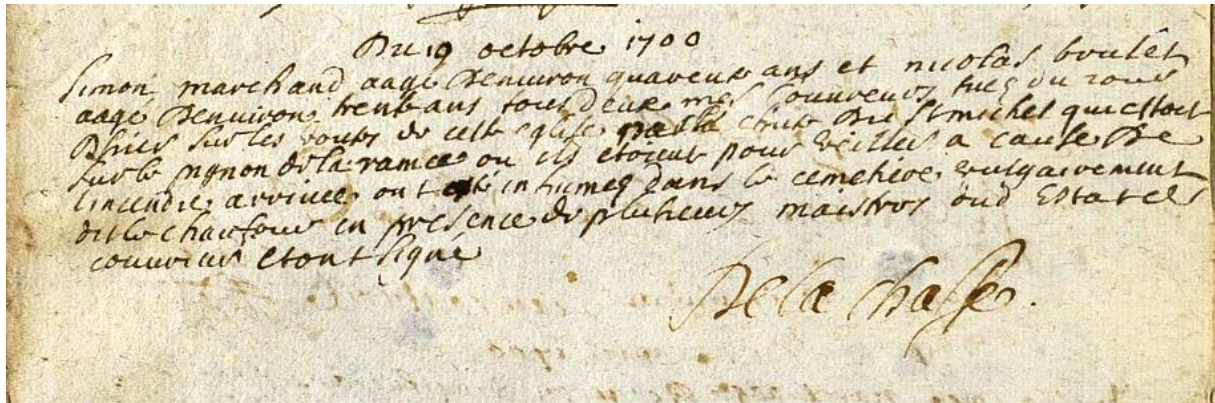 Du 19 octobre 1700
Simon marchand aagé Denuiron quarente ans et nicolas boulet
aagé Denuiron trente ans tous deux mes couureurs tuez du
sur les voutes de cette eglise par la chute Du St michel qui estoit
sur le pignon de la ramee ou ils etoient pour veiller a cause De
lincendie arrivee ont esté inhumez dans le cemetiere vulgairement
dit le charfour en presence de plusieurs maistres oud Estat et
couureurs et ont signé
De la Chasse.